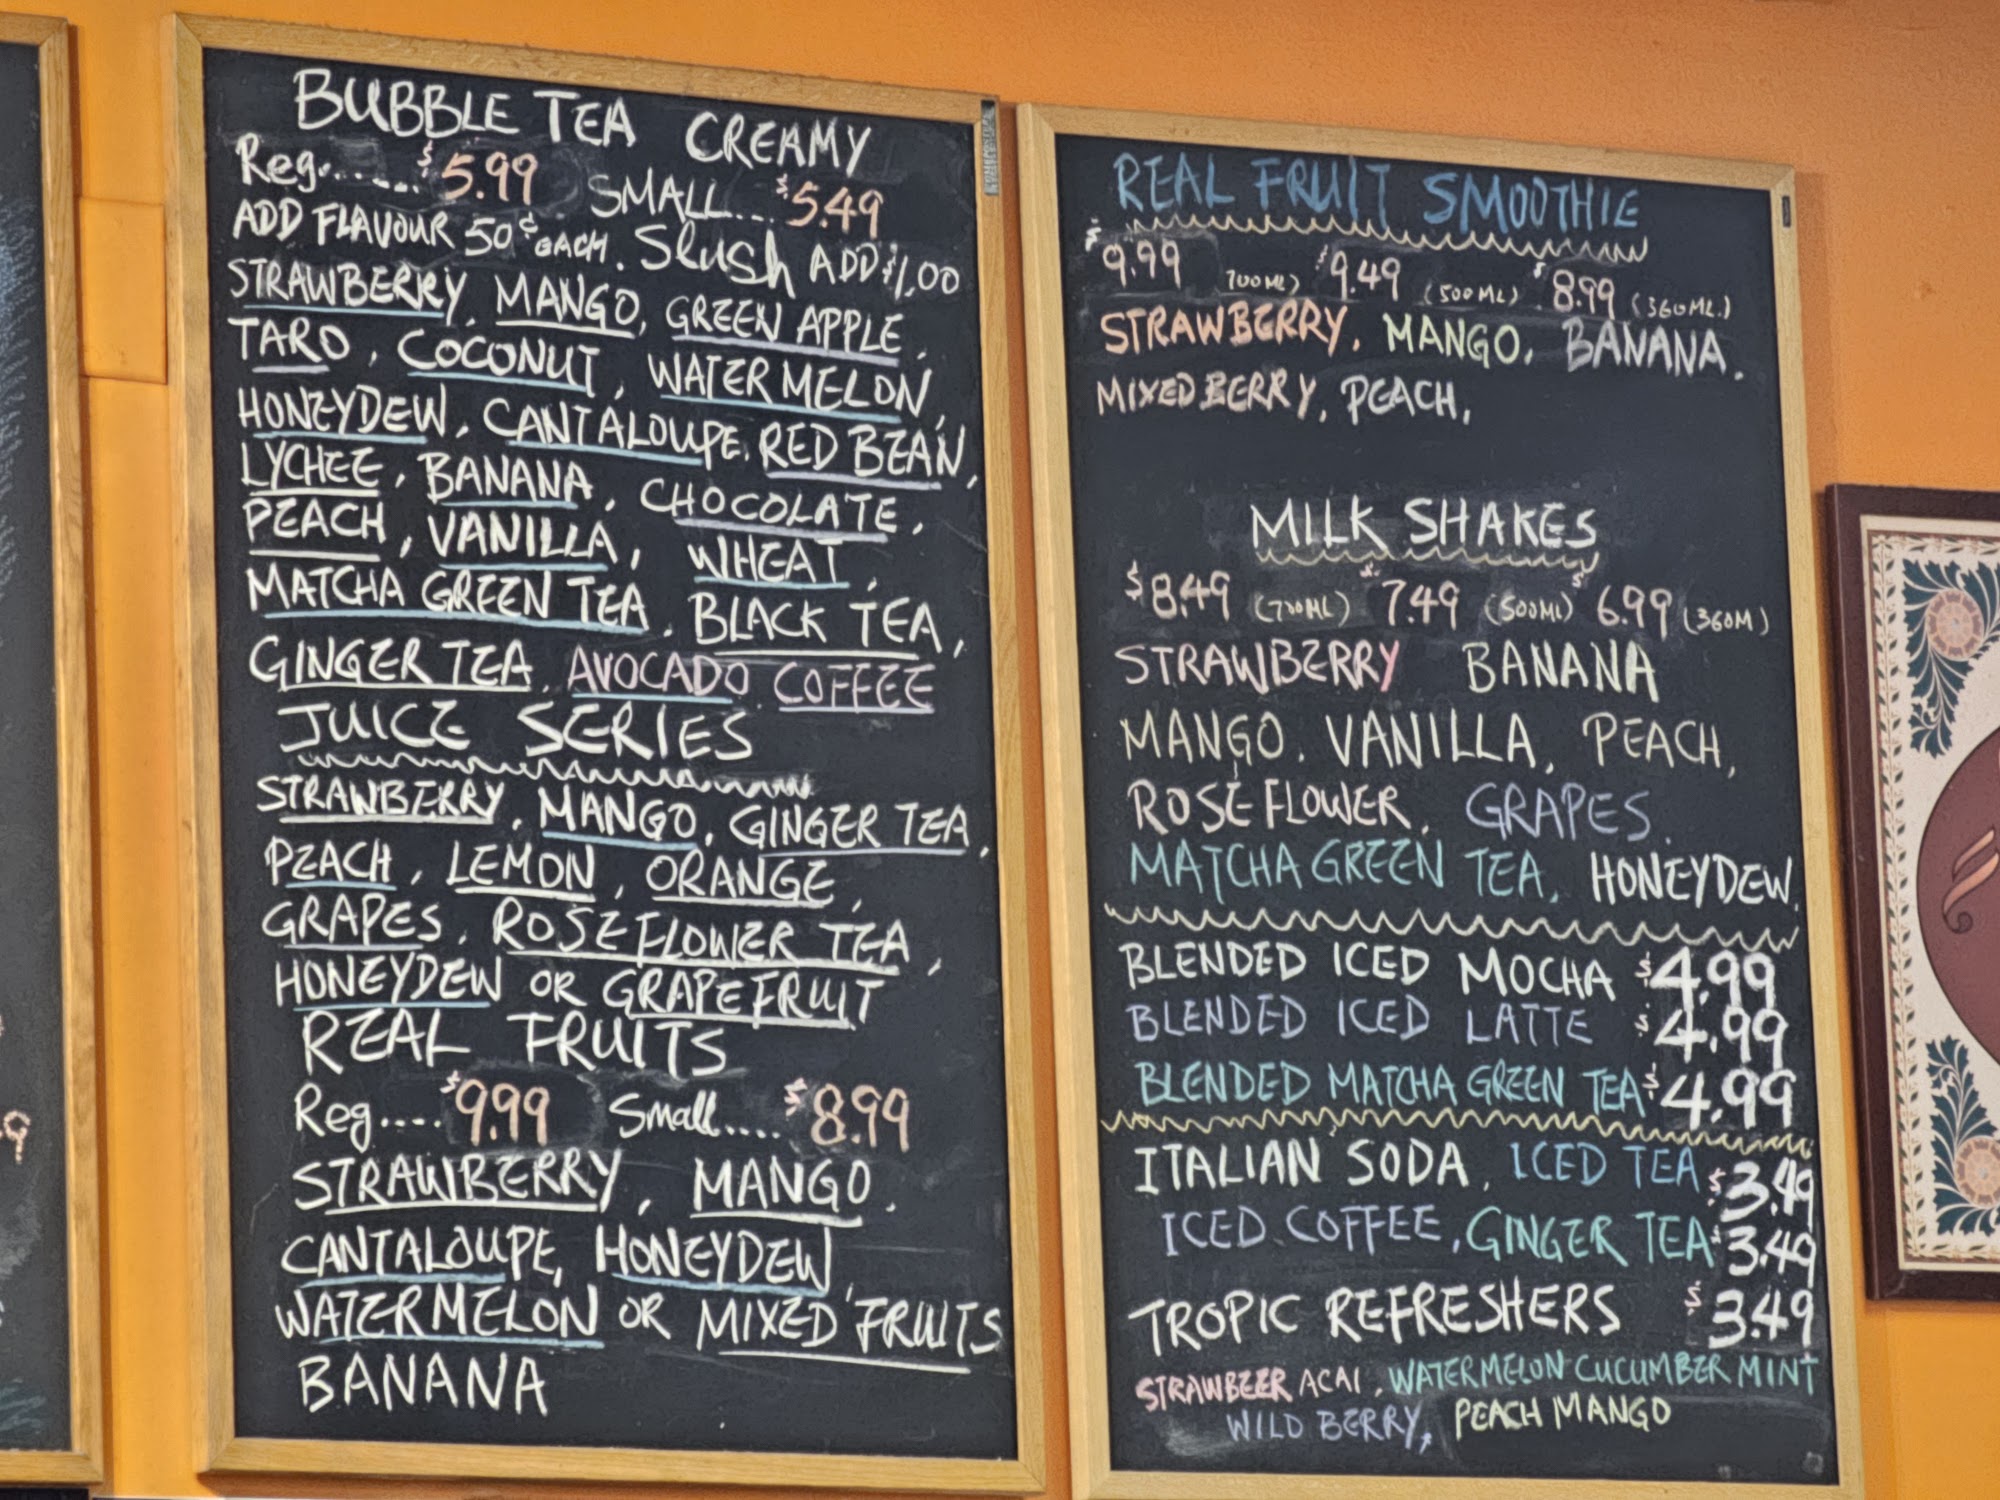 BUBBLE TEA CREAMY
Reg...... $5.99 SMALL... $5.49
ADD FLAVOUR 50¢ EACH. Slush ADD $1,00
STRAWBERRY, MANGO, GREEN APPLE,
TARO, COCONUT, WATERMELON,
HONEYDEW, CANTALOUPE, RED BEAN,
LYCHEE, BANANA, CHOCOLATE,
PEACH, VANILLA, WHEAT,
MATCHA GREEN TEA, BLACK TEA,
GINGER TEA, AVOCADO, COFFEE
JUICE SERIES
STRAWBERRY, MANGO, GINGER TEA,
PEACH, LEMON, ORANGE,
GRAPES, ROSE FLOWER TEA,
HONEYDEW OR GRAPEFRUIT
REAL FRUITS
Reg.... $9.99 Small..... $8.99
STRAWBERRY, MANGO,
CANTALOUPE, HONEYDEW,
WATERMELON OR MIXED FRUITS
BANANA
REAL FRUIT SMOOTHIE
$9.99 (700ML) $9.49 (500ML) $8.99 (360ML.)
STRAWBERRY, MANGO, BANANA.
MIXED BERRY, PEACH,
MILK SHAKES
$8.49 (700ML) $7.49 (500ML) $6.99 (360M)
STRAWBERRY BANANA
MANGO, VANILLA, PEACH,
ROSE FLOWER, GRAPES,
MATCHA GREEN TEA, HONEYDEW.
BLENDED ICED MOCHA $4.99
BLENDED ICED LATTE $4.99
BLENDED MATCHA GREEN TEA $4.99
ITALIAN SODA, ICED TEA $3.49
ICED COFFEE, GINGER TEA $3.49
TROPIC REFRESHERS $3.49
STRAWBEER ACAI, WATERMELON CUCUMBER MINT
WILD BERRY, PEACH MANGO